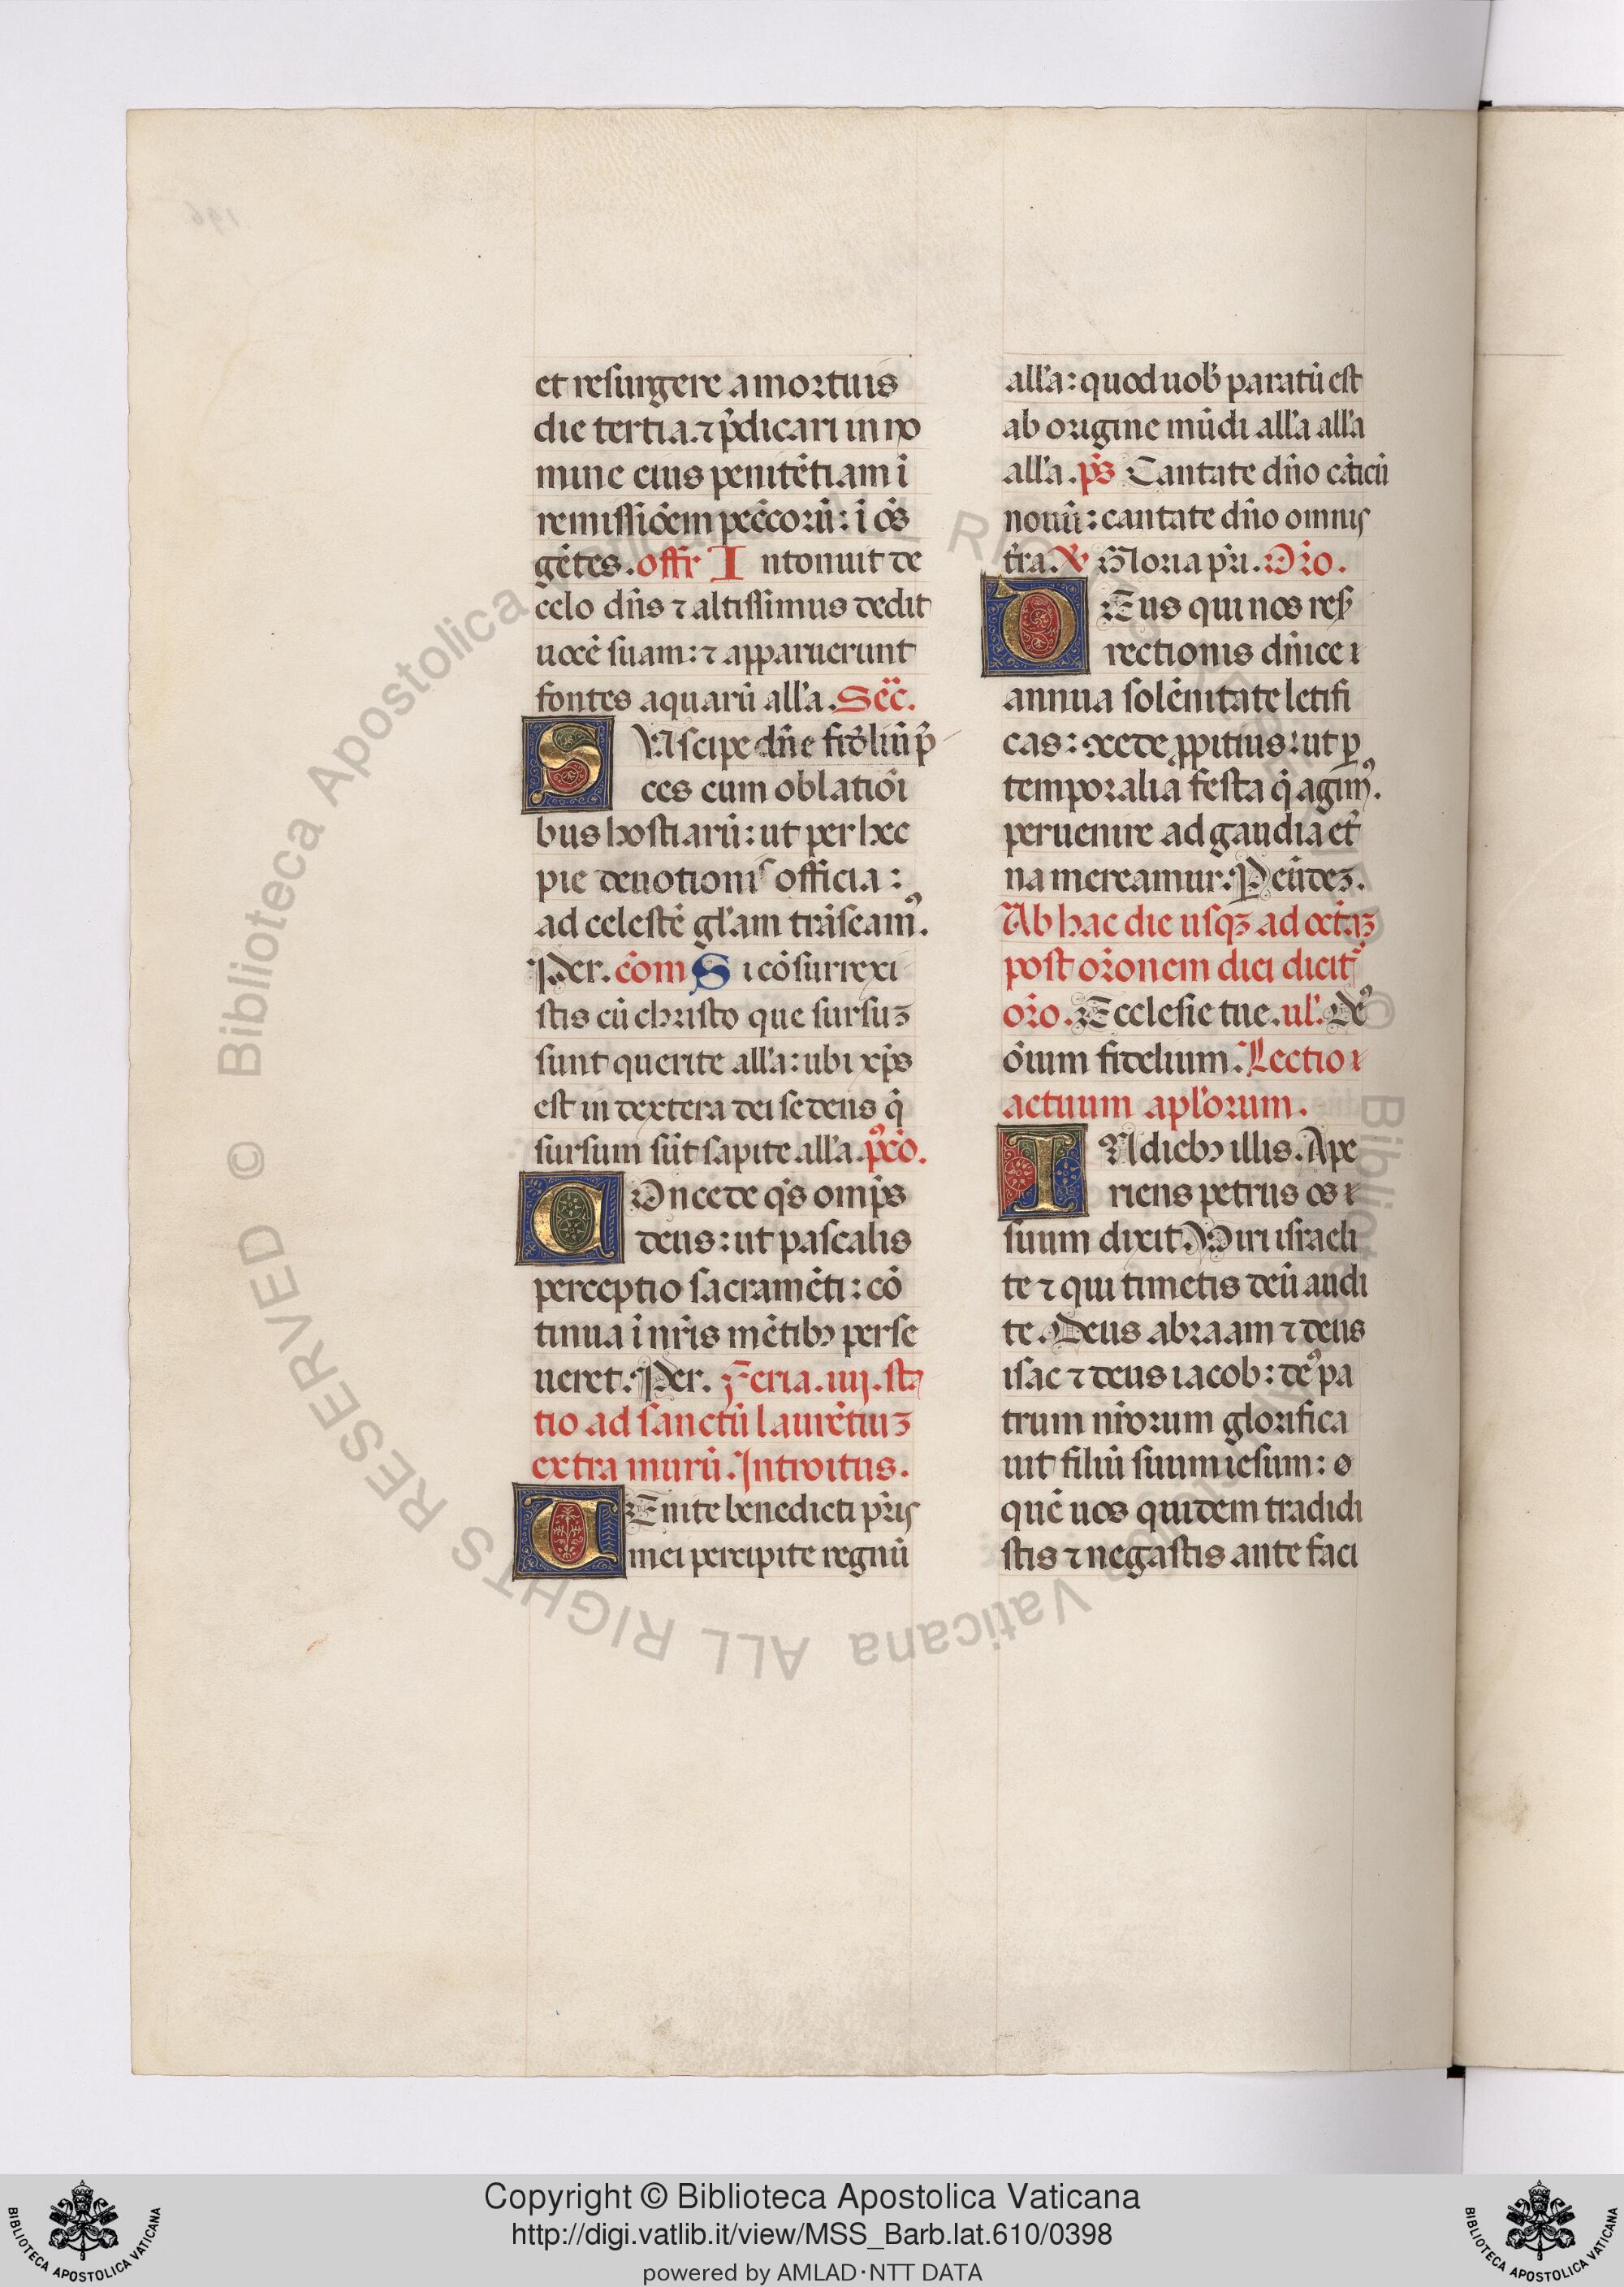 et resurgere a mortuis
die tertia. ⁊ p̃dicari in no
mine eius penitẽtiam ĩ
remissiõem pec̃corũ: ĩ õs
gẽtes. offr̃ Intonuit de
celo dñs ⁊ altissimus dedit
uocẽ suam: ⁊ apparuerunt
fontes aquarũ all'a. Sec̃.
SUscipe dñe fidẽliũ p̃
ces cum oblatiõi
bus hostiarũ: ut per hec
pie deuotionis officia:
ad celestẽ gl'am trãseamꝰ.
Per. cõm Si cõsurrexi
stis cũ christo que sursuꝫ
sunt querite all'a: ubi xp̃s
est in dextera dei sedens q̃
sursum sũt sapite all'a. pꝰcõ.
COncede q̃s omp̃s
deus: ut pascalis
perceptio sacramẽti: cõ
tinua ĩ nr̃is mẽtibꝫ perse
ueret. Per. Feria. iiij. sta
tio ad sanctũ laurẽtiuꝫ
extra murũ. Introitus.
UEnite benedicti pr̃is
mei percipite regnũ
all'a: quod uob' paratũ est
ab origine mũdi all'a all'a
all'a. p̃s Cantate dño cãticũ
nouũ: cantate dño omnis
tr̃a. ℣ Gloria pr̃i. Or̃o.
DEus qui nos res
rectionis dñice
annua solẽnitate letifi
cas: cõcede ꝓpitius: ut ꝑ
temporalia festa q̃ agimꝰ.
peruenire ad gaudia et̃
na mereamur. Peũdeꝫ.
Ab hac die usqꝫ ad octãꝫ
post or̃onem diei dicit̃
or̃o. Ecclesie tue. ul'. Deꝰ
õium fidelium. Lectio
actuum apl'orum.
IN diebꝫ illis. Ape
riens petrus os
suum dixit. Viri israeli
te ⁊ qui timetis deũ audi
te. Deus abraam ⁊ deus
isac ⁊ deus iacob: deꝰ pa
trum nr̃orum glorifica
uit filiũ suum iesum:
quẽ uos quidem tradidi
stis ⁊ negastis ante faci
© Biblioteca Apostolica Vaticana ALL RIGHTS RESERVED
Copyright © Biblioteca Apostolica Vaticana
http://digi.vatlib.it/view/MSS_Barb.lat.610/0398
powered by AMLAD·NTT DATA
BIBLIOTECA APOSTOLICA VATICANA
BIBLIOTECA APOSTOLICA VATICANA